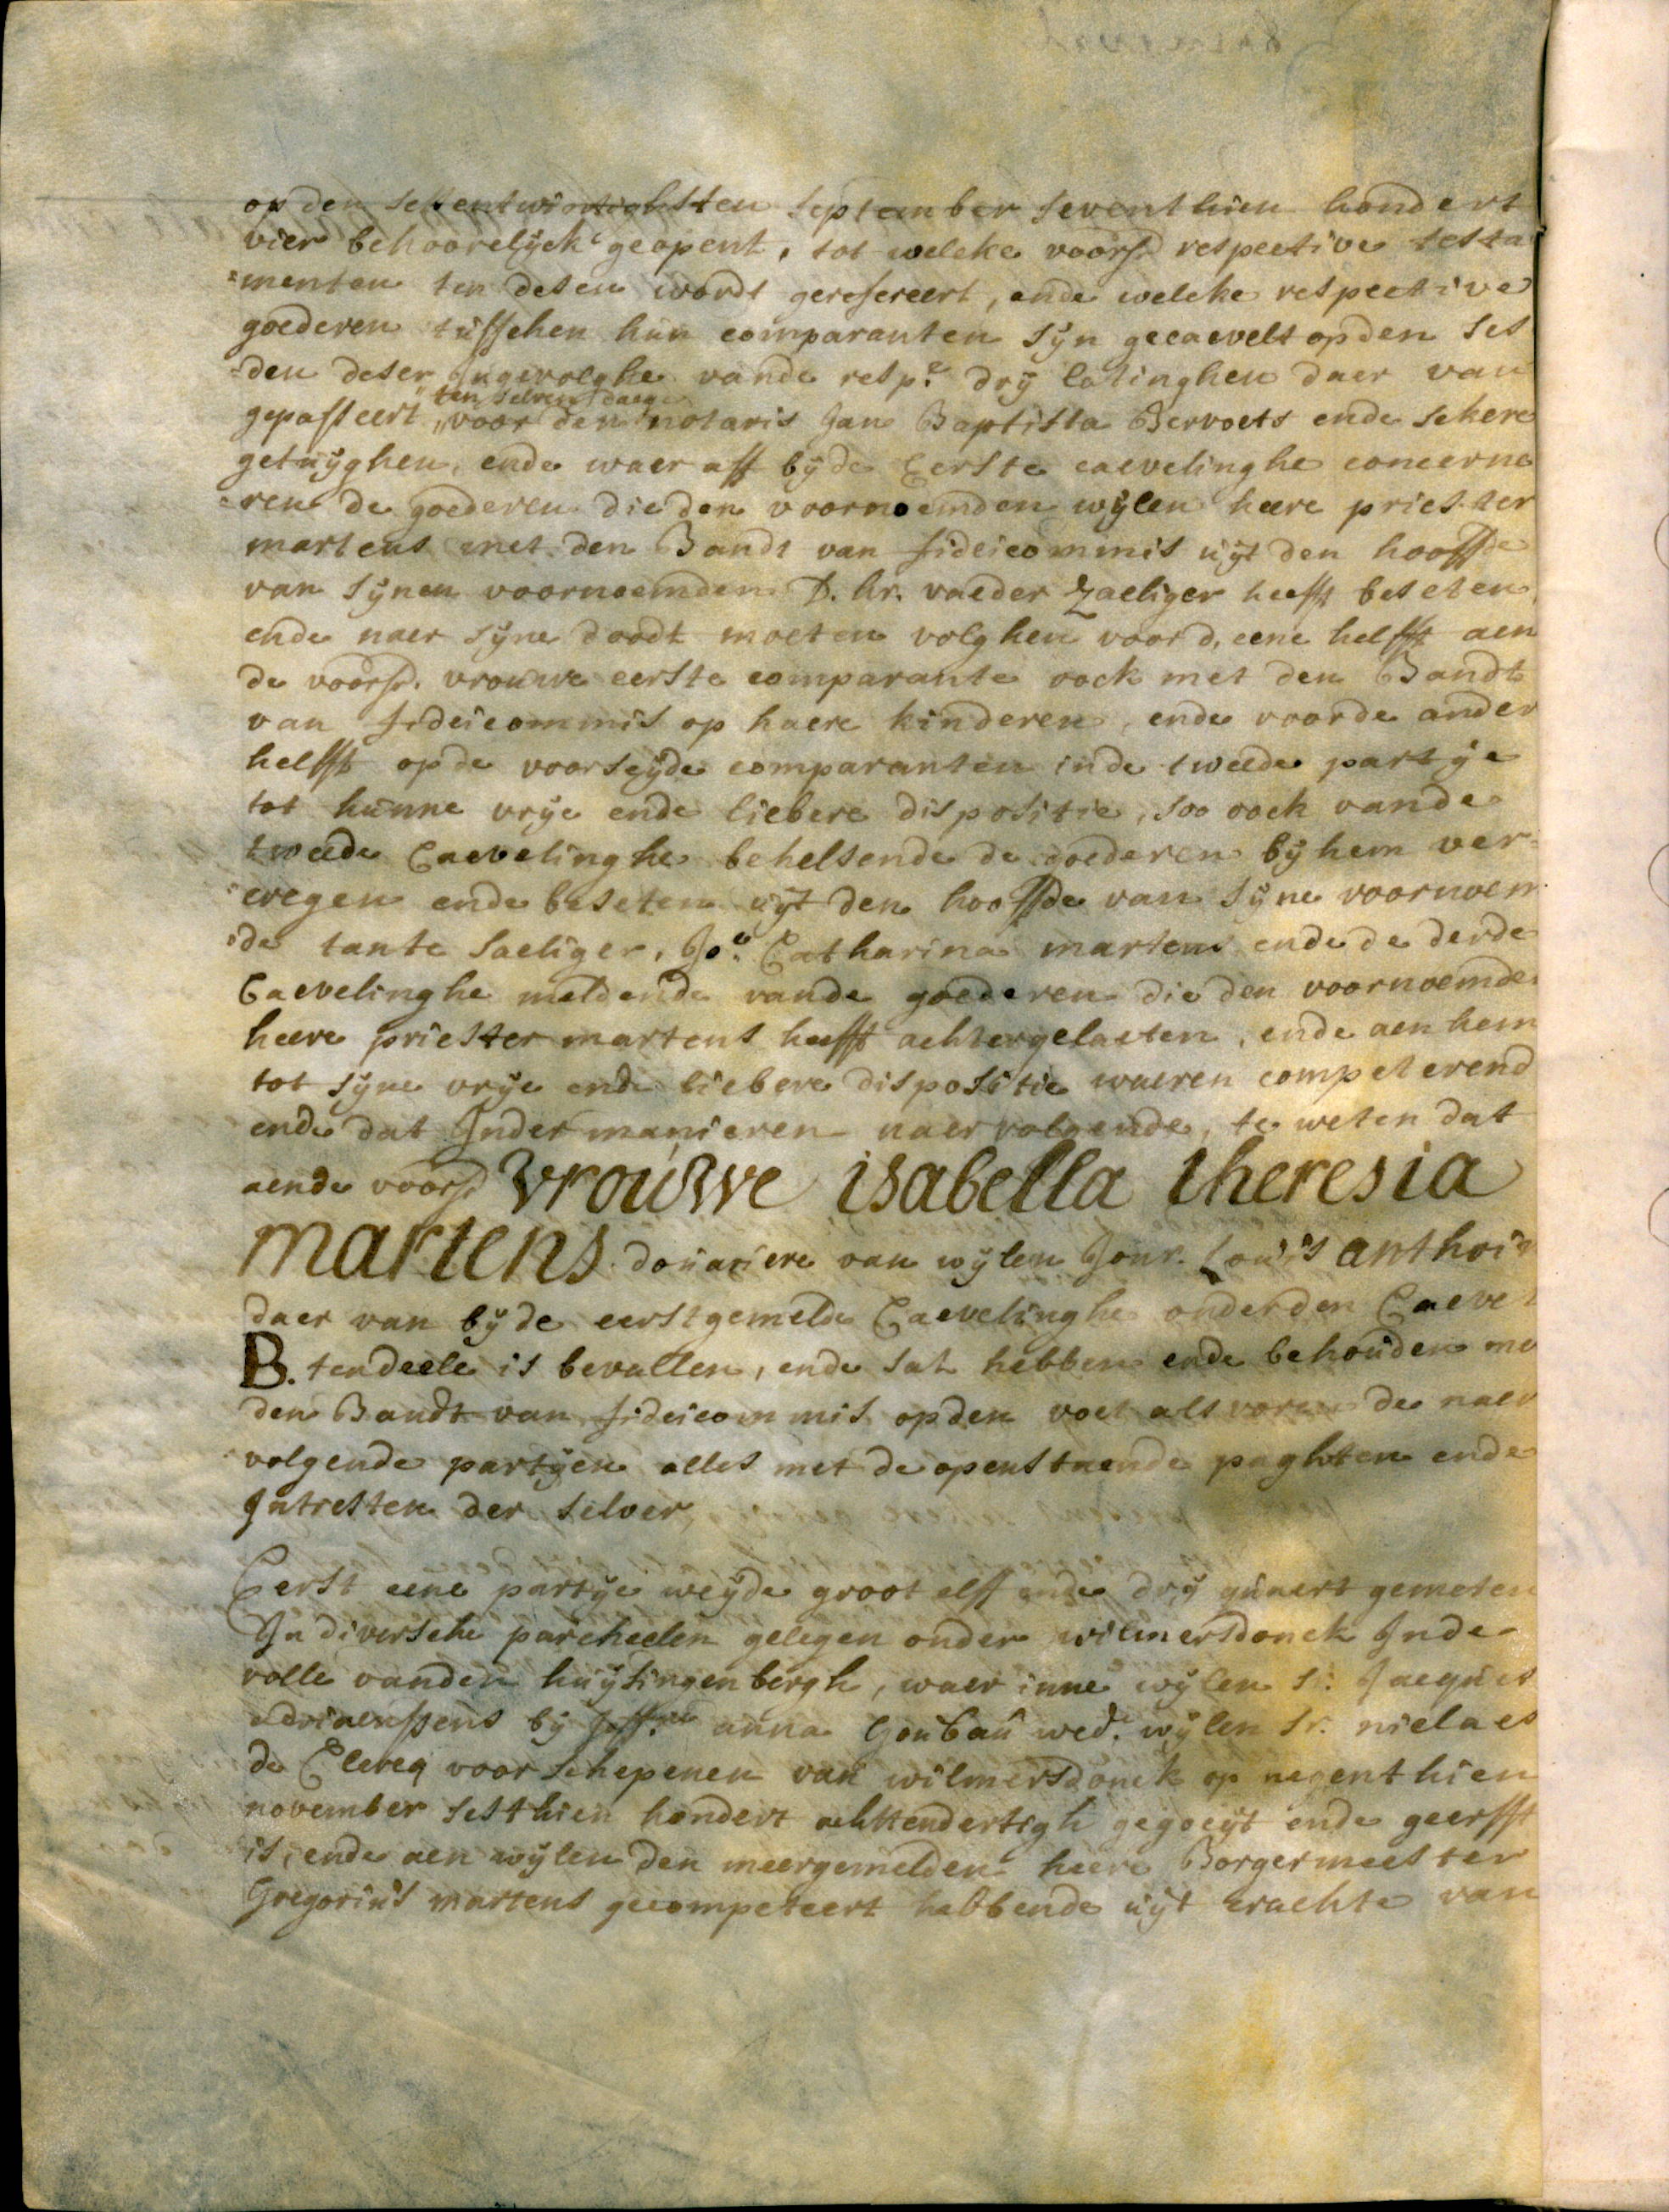 op den sessentwintighsten september seventhien hondert
vier behoorelijck geopent, tot welcke voorsr. respective testa
=menten ten desen wordt gerefereert, ende welcke respective
goederen tusschen hun comparanten sijn gecaevelt op den ses
=den deser Ingevolghe vande resp.e drij lotinghen daer van
ten selven daege
gepasseert "voor den notaris Jan Baptista Bervoets ende sekere
getuijghen, ende waer aff bijde Eerste caevelinghe concerne
=ren de goederen die den voornoemden wijlen heere priester
martens met den Bandt van fideicommis uijt den hooffde
van sijnen voornoemden D. hr. vaeder Zaeliger heefft beseten,
ende naer sijne doodt moeten volghen voor d, eene helfft aen
de voorsr. vrouwe eerste comparante oock met den Bandt
van fideicommis op haere kinderen, ende voorde ander
helfft op de voorseijde comparanten inde tweede partije
tot hunne vrije ende liebere dispositie, soo oock vande
tweede Caevelinghe behelsende de goederen bij hem ver=
=cregen ende beseten uijt den hooffde van sijne voornoem
=de tante saeliger, Jo.e Catharina martens ende de derde
Caevelinghe meldende vande goederen die den voornoemde
heere priester martens heefft achtergelaeten, ende aen hem
tot sijne vrije ende liebere dispositie waeren competerend
ende dat Inder manieren naervolgende, te weten dat
aende voorsr. vrouwe isabella theresia
martens douariere van wijlen Jonr. Louis anthoi
daer van bijde eerstgemelde Caevelinghe onder den Caevel
B. tendeele is bevallen, ende sal hebben ende behouden me
den Bandt van fideicommis op den voet als voren de naer
volgende partijen alles met de openstaende paghten ende
Intresten der selver

Eerst eene partije weijde groot elff ende drij quaert gemeten
In diversche percheelen gelegen onder wilmersdonck Inde
rolle vanden huijsingenbergh, waer inne wijlen sr. Jacques
adriaenssens bij Joff.e anna Goubau wed.e wijlen sr. niclaes
de Clercq voor schepenen van wilmersdonck op negenthien
november sesthien hondert achttendertigh gegoeijt ende geerfft
is, ende aen wijlen den meergemelden heere Borgermeester
Gregorius martens gecompeteert hebbende uijt crachte van